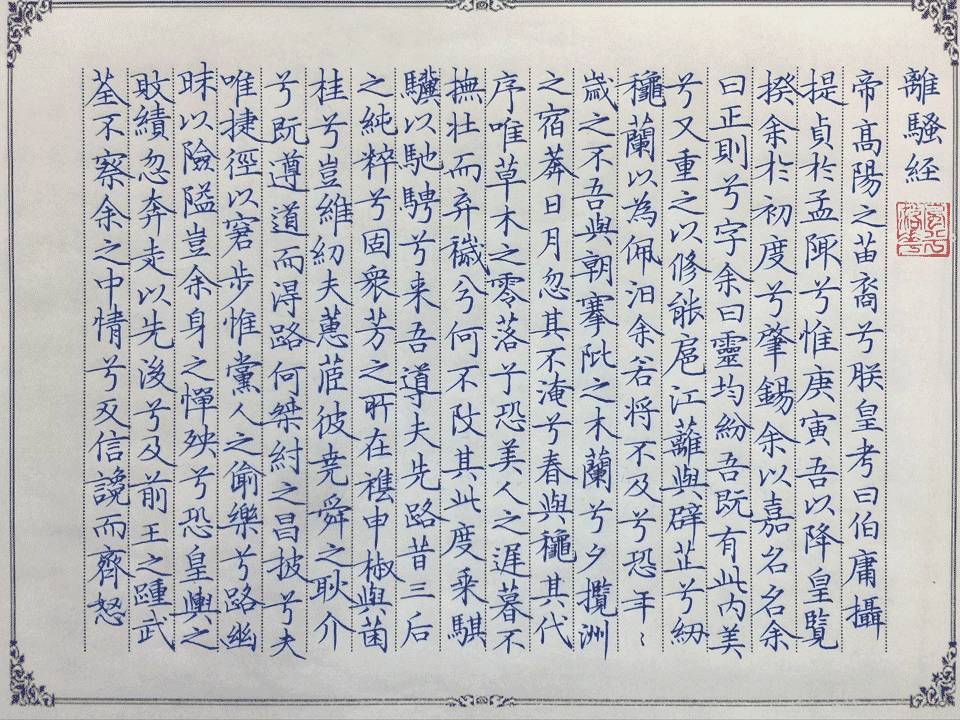 離騷經
帝高陽之苗裔兮朕皇考曰伯庸攝
提貞於孟陬兮惟庚寅吾以降皇覽
揆余於初度兮肇錫余以嘉名名余
曰正則兮字余曰靈均紛吾既有此內美
兮又重之以修能扈江蘺與辟芷兮紉
龝蘭以為佩汩余若将不及兮恐年〻
歲之不吾與朝搴阰之木蘭兮夕攬洲
之宿莽日月忽其不淹兮春與龝其代
序唯草木之零落兮恐美人之遲暮不
撫壯而弃穢兮何不改其此度乘騏
驥以馳騁兮来吾導夫先路昔三后
之純粹兮固衆芳之所在襍申椒與菌
桂兮豈維紉夫蕙茝彼堯舜之耿介
兮既遵道而得路何桀紂之昌披兮夫
唯捷徑以窘步惟黨人之偷樂兮路幽
昧以險隘豈余身之憚殃兮恐皇輿之
敗績忽奔走以先後兮及前王之踵武
荃不察余之中情兮反信讒而齊怒